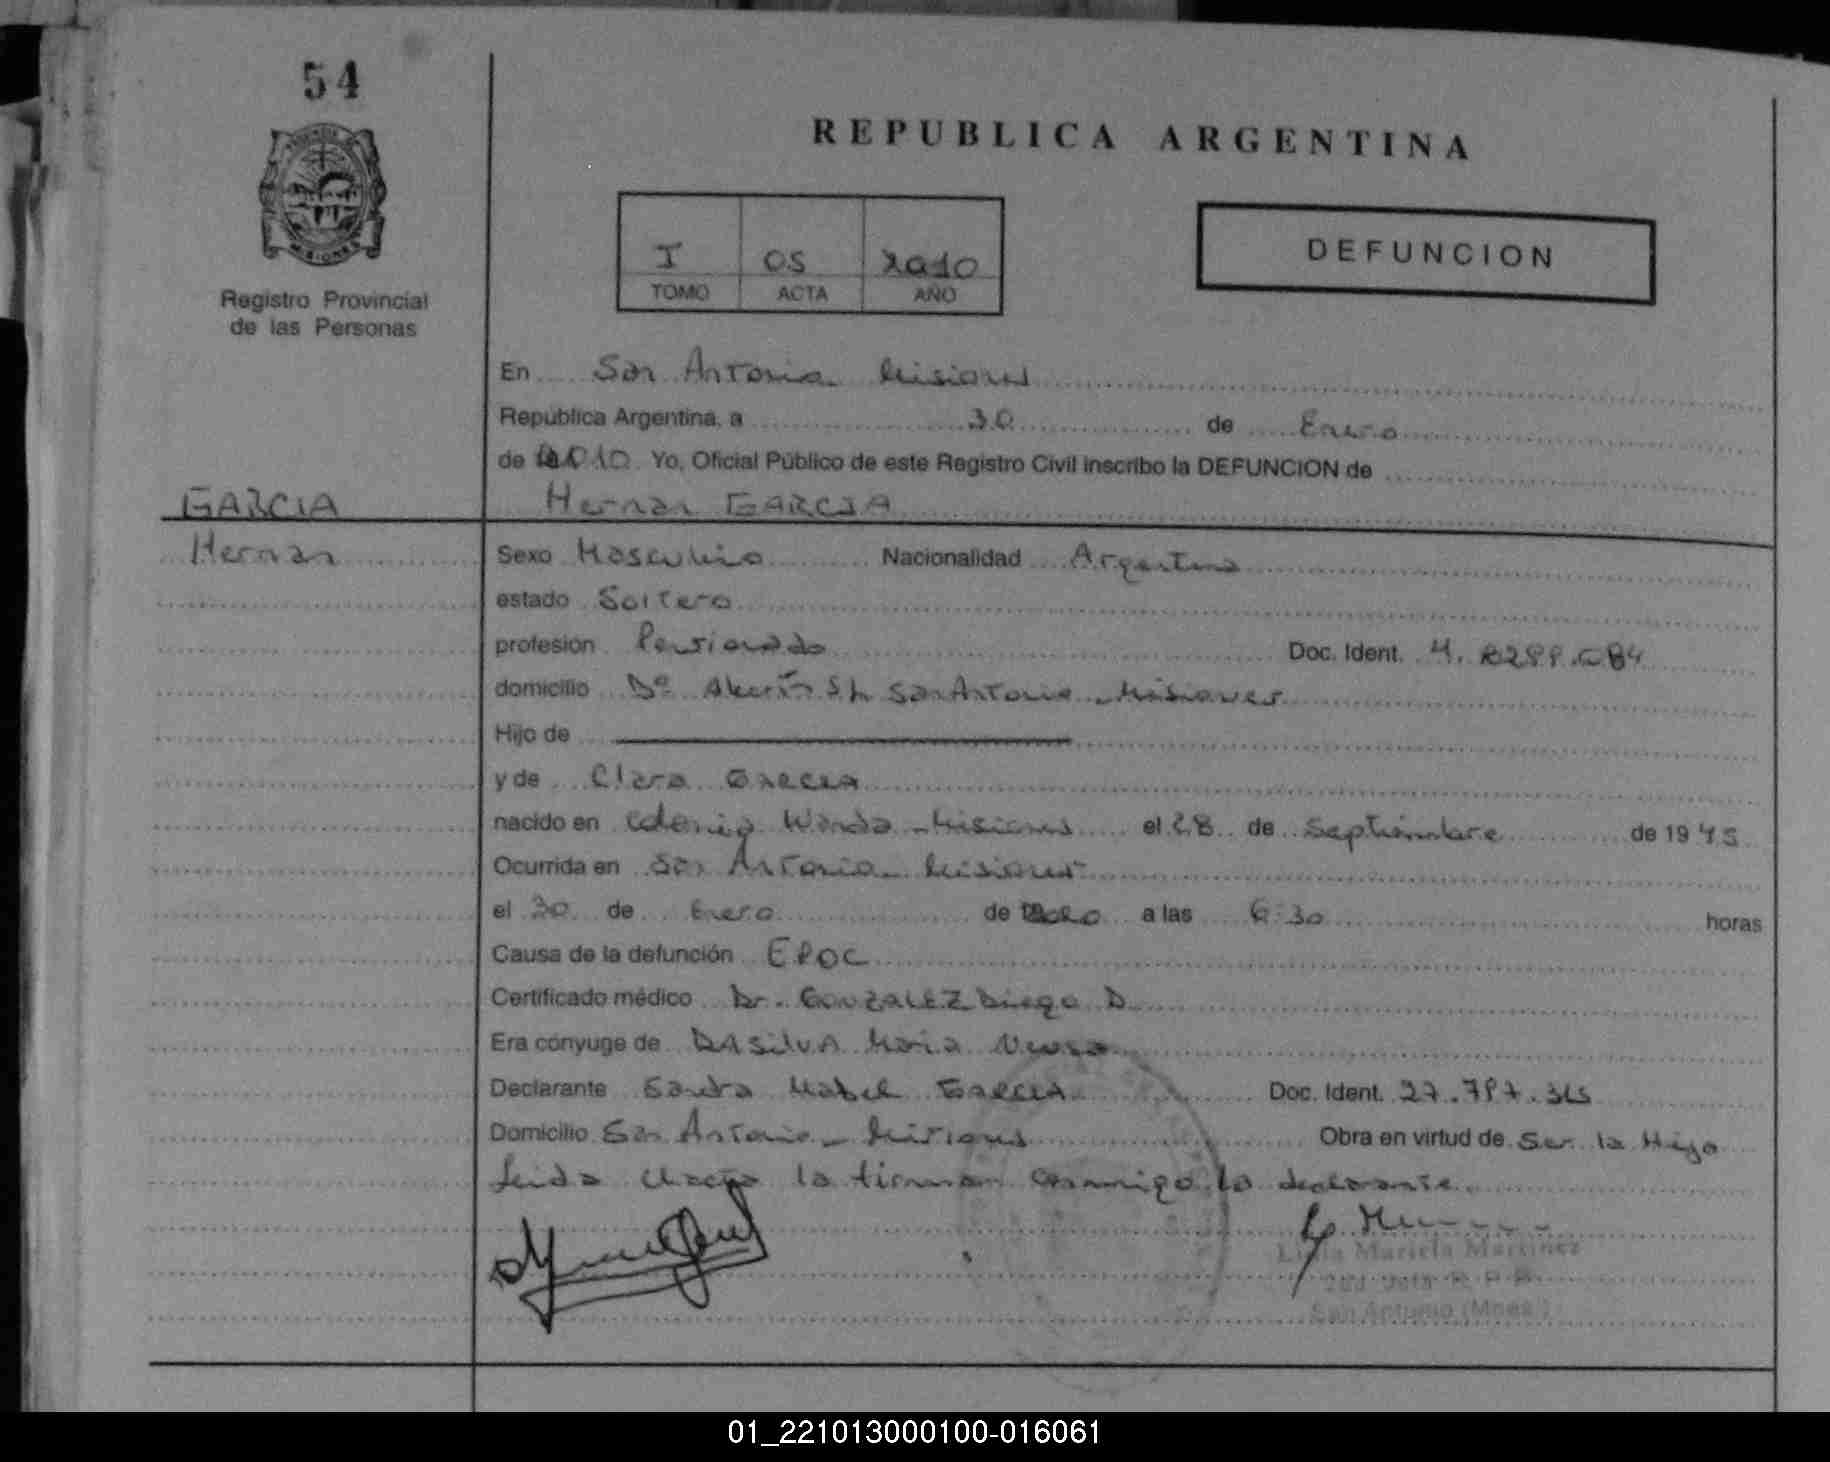 54
REPUBLICA ARGENTINA
MISIONES
Registro Provincial
de las Personas
I 05 2010
TOMO ACTA AÑO
DEFUNCION
En San Antonio Misiones
República Argentina, a 30 de Enero
de 2010 Yo, Oficial Público de este Registro Civil inscribo la DEFUNCION de
GARCIA
Hernan GARCIA
Hernan
Sexo Masculino Nacionalidad Argentina
estado Soltero
profesión Pensionado Doc. Ident. M.
domicilio Bº S/n San Antonio - Misiones
Hijo de
y de Clara GARCIA
nacido en Colonia Wanda - Misiones el 28 de Septiembre de 1945
Ocurrida en San Antonio - Misiones
el 30 de Enero de a las 6:30 horas
Causa de la defunción EPOC
Certificado médico Dr. GONZALEZ Diego D.
Era cónyuge de DASILVA Maria
Declarante Sandra Mabel GARCIA Doc. Ident. 27.797.
Domicilio San Antonio - Misiones Obra en virtud de Ser la Hija
Leida el acta la firman conmigo la declarante.
Mariela Martinez
San Antonio (Mnes.)
01_221013000100-016061